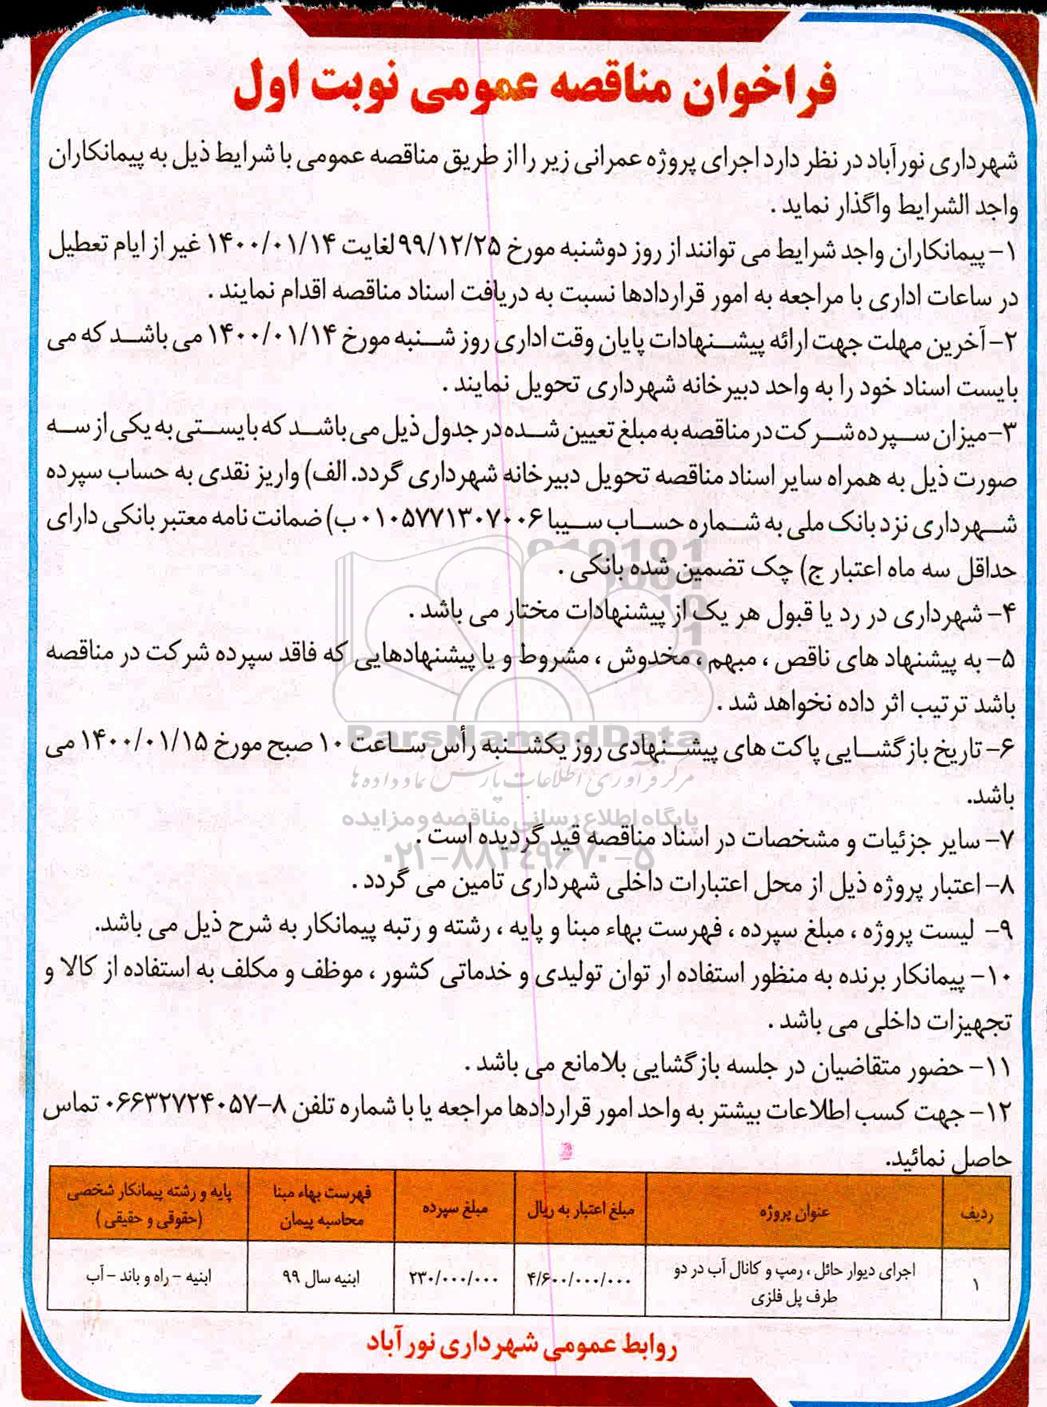 فراخوان مناقصه عمومی نوبت اول
شهرداری نورآباد در نظر دارد اجرای پروژه عمرانی زیر را از طریق مناقصه عمومی با شرایط ذیل به پیمانکاران
واجد الشرایط واگذار نماید .
۱- پیمانکاران واجد شرایط می توانند از روز دوشنبه مورخ ۹۹/۱۲/۲۵ لغایت ۱۴۰۰/۰۱/۱۴ غیر از ایام تعطیل
در ساعات اداری با مراجعه به امور قراردادها نسبت به دریافت اسناد مناقصه اقدام نمایند .
۲- آخرین مهلت جهت ارائه پیشنهادات پایان وقت اداری روز شنبه مورخ ۱۴۰۰/۰۱/۱۴ می باشد که می
بایست اسناد خود را به واحد دبیرخانه شهرداری تحویل نمایند .
۳- میزان سپرده شرکت در مناقصه به مبلغ تعیین شده در جدول ذیل می باشد که بایستی به یکی از سه
صورت ذیل به همراه سایر اسناد مناقصه تحویل دبیرخانه شهرداری گردد. الف) واریز نقدی به حساب سپرده
شهرداری نزد بانک ملی به شماره حساب سیبا ۰۱۰۵۷۷۱۳۰۷۰۰۶ ب) ضمانت نامه معتبر بانکی دارای
حداقل سه ماه اعتبار ج) چک تضمین شده بانکی .
۴- شهرداری در رد یا قبول هر یک از پیشنهادات مختار می باشد .
۵- به پیشنهاد های ناقص ، مبهم ، مخدوش ، مشروط و یا پیشنهادهایی که فاقد سپرده شرکت در مناقصه
باشد ترتیب اثر داده نخواهد شد .
ParsNamadData
۶- تاریخ بازگشایی پاکت های پیشنهادی روز یکشنبه رأس ساعت ۱۰ صبح مورخ ۱۴۰۰/۰۱/۱۵ می
مرکز فرآوری اطلاعات پارس نماد داده ها
باشد.
پایگاه اطلاع رسانی مناقصه و مزایده
۷- سایر جزئیات و مشخصات در اسناد مناقصه قید گردیده است .
۰۲۱-۸۸۳۴۹۶۷۰-۵
۸- اعتبار پروژه ذیل از محل اعتبارات داخلی شهرداری تامین می گردد .
۹- لیست پروژه ، مبلغ سپرده ، فهرست بهاء مبنا و پایه ، رشته و رتبه پیمانکار به شرح ذیل می باشد.
۱۰- پیمانکار برنده به منظور استفاده ار توان تولیدی و خدماتی کشور ، موظف و مکلف به استفاده از کالا و
تجهیزات داخلی می باشد .
۱۱- حضور متقاضیان در جلسه بازگشایی بلامانع می باشد .
۱۲- جهت کسب اطلاعات بیشتر به واحد امور قراردادها مراجعه یا با شماره تلفن ۸-۰۶۶۳۲۷۲۴۰۵۷ تماس
حاصل نمائید.
ردیف عنوان پروژه مبلغ اعتبار به ریال مبلغ سپرده فهرست بهاء مبنا محاسبه پیمان پایه و رشته پیمانکار شخصی (حقوقی و حقیقی )
۱ اجرای دیوار حائل ، رمپ و کانال آب در دو طرف پل فلزی ۴/۶۰۰/۰۰۰/۰۰۰ ۲۳۰/۰۰۰/۰۰۰ ابنیه سال ۹۹ ابنیه - راه و باند - آب
روابط عمومی شهرداری نورآباد